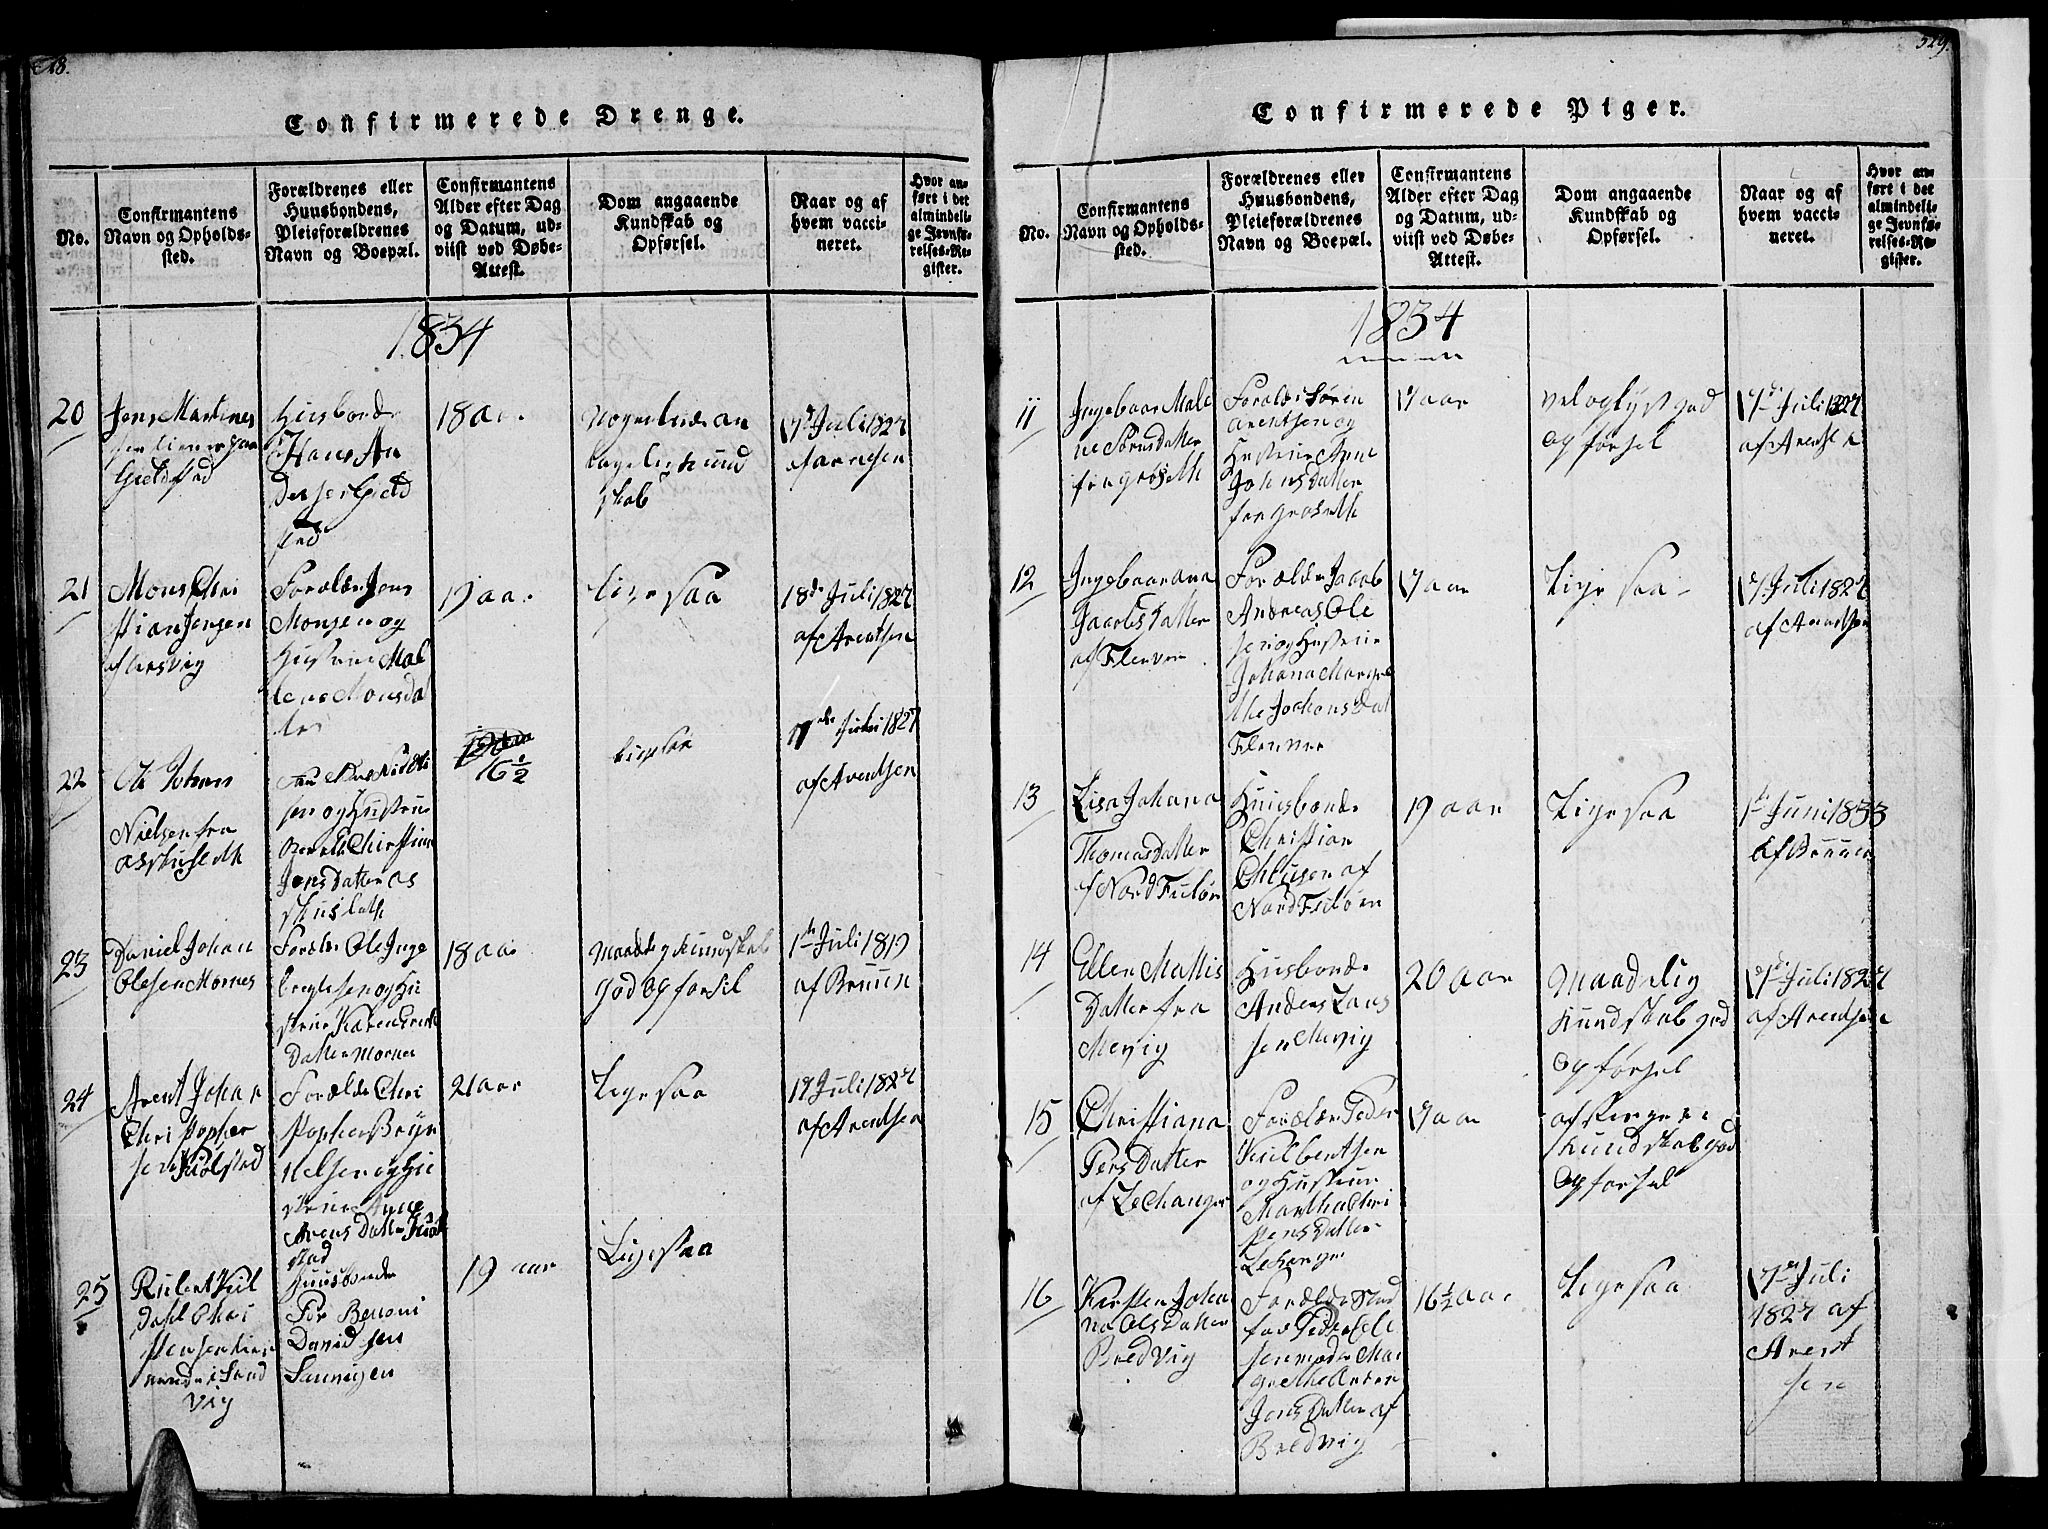 18.
Confirmerede Drenge.
No.
Confirmantens
Navn og Opholds-
sted.
Forældrenes eller
Huusbondens,
Pleieforældrenes
Navn og Boepæl.
Confirmantens
Alder efter Dag
og Datum, ud-
viist ved Døbe-
Attest.
Dom angaaende
Kundskab og
Opførsel.
Naar og af
hvem vacci-
neret.
Hvor an-
ført i det
almindeli-
ge Jevnfø-
relses-Re-
gister.
1834
20
Jens Martines
Gieldstad
Husbonde
Hans An
dersen Gield
sted
18 aa.
Nogenlunde an
skab
17de Juli 1827
21
Mons Chri
stian Jensen
Forælder Jens
Monsen og
Hustrue Mal
lene Monsda
ter
19 aa.
Lige saa
18de Juli 1827
af Arentsen
22
Ole Johan
Nielsen fra
sen og Hustrue
Jensdatter as
16 1/2
Lige saa
17de Juli 1827
af Arentsen
23
Daniel Johan
Olesen Mornes
Forælder Ole Inge
Datter Mornes
18 aa.
Maadelig Kundskab
god Opførsel
1de Juli 1819
af Bruun
24
Arent Johan
Chri stopher
sen Kiolstad
Forælder Chri
stopher
Arens Datter Kiol
stad
21 aar
Lige saa
17 Juli 1827
af Arentsen
25
vig
Huusbonde
Per Benoni
David sen
19 aar
Lige saa
529.
Confirmerede Piger.
No.
Confirmantens
Navn og Opholds-
sted.
Forældrenes eller
Huusbondens,
Pleieforældrenes
Navn og Boepæl.
Confirmantens
Alder efter Dag
og Datum, ud-
viist ved Døbe-
Attest.
Dom angaaende
Kundskab og
Opførsel.
Naar og af
hvem vacci-
neret.
Hvor an-
ført i det
almindeli-
ge Jevnfø-
relses-Re-
gister.
1834
11
Ingebaar Male
ne Sørnsdatter
Forælder Søren
Arentsen og
Hustrue Anne
Johnsdatter
17 aar
vel oplyst god
opførsel
17de Juli 1827
af Arentsen
12
Ingebaar Ana
Jacobsdatter
Forælder Jacob
Andreas Ole
sen og Hustrue
Johana Margre
the Jochensdat
17 aar
Lige saa
17 Juli 1827
af Arentsen
13
Lisa Johana
Thomasdatter
af Nord Fuløen
Huusbonde
Christian
Olausen af
Nord Fuløen
19 aar
Lige saa
1de Juni 1833
af Bruun
14
Ellen Mattis
Datter fra
Mevig
Husbonde
Anders Lars
sen Mevig
20 aar
Maadelig
Kundskab god
Opførsel
17de Juli 1827
af Arentsen
15
Christiana
Pers Datter
af Lechanger
Forælder Peder
og Hustrue
Martha Chri
stens Datter
17 aar
Kundskab god
Opførsel
16
Kirsten Joha
na Ols Datter
Bredvig
Forælder Sted
far Peder Ole
sen moder Mar
Jens Datter af
Bredvig
16 1/2 aar
Lige saa
17de Juli
1827 af
Arent
sen